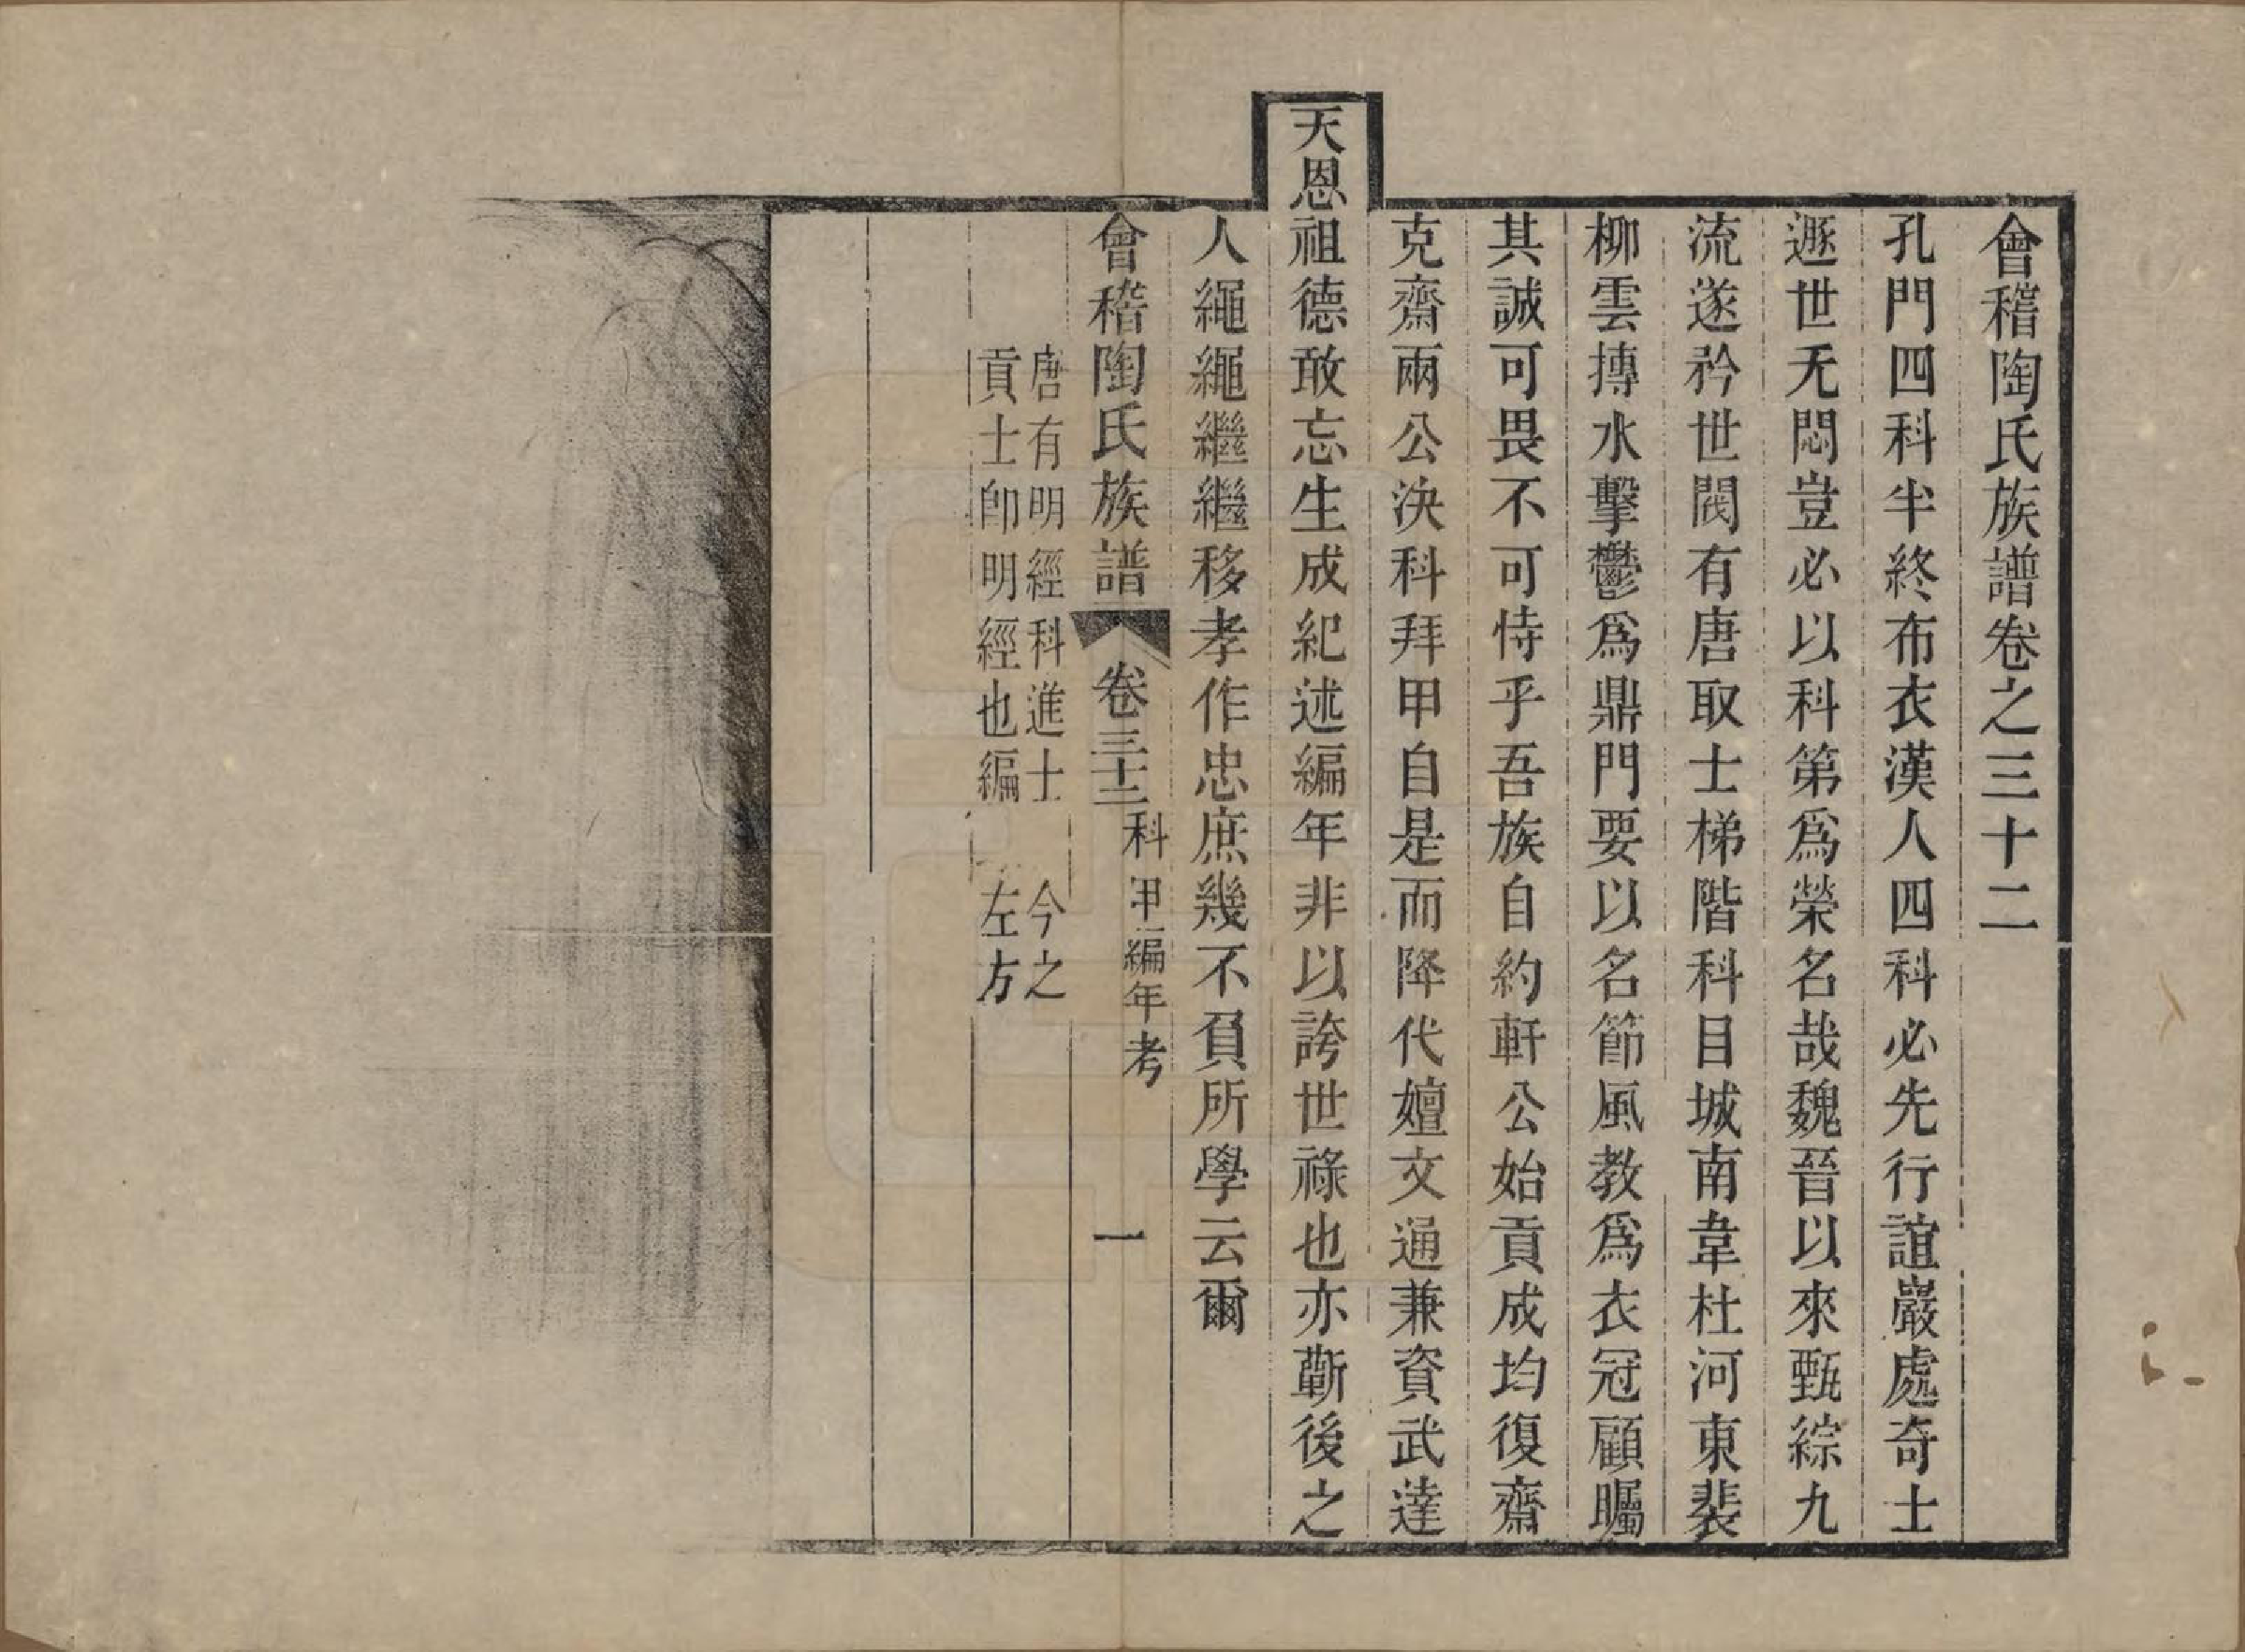 會稽陶氏族譜卷之三十二
孔門四科半終布衣漢人四科必先行誼巖處奇士
遯世无悶豈必以科第爲榮名哉魏晉以來甄綜九
流遂矜世閥有唐取士梯階科目城南韋杜河東裴
柳雲摶水擊鬱爲鼎門要以名節風教爲衣冠顧矚
其誠可畏不可恃乎吾族自約軒公始貢成均復齋
克齋兩公決科拜甲自是而降代嬗文通兼資武達
天恩祖德敢忘生成紀述編年非以誇世祿也亦蘄後之
人繩繩繼繼移孝作忠庶幾不負所學云爾
會稽陶氏族譜 卷三十二 科甲編年考 一
唐有明經科進士 今之
貢士卽明經也編 左方